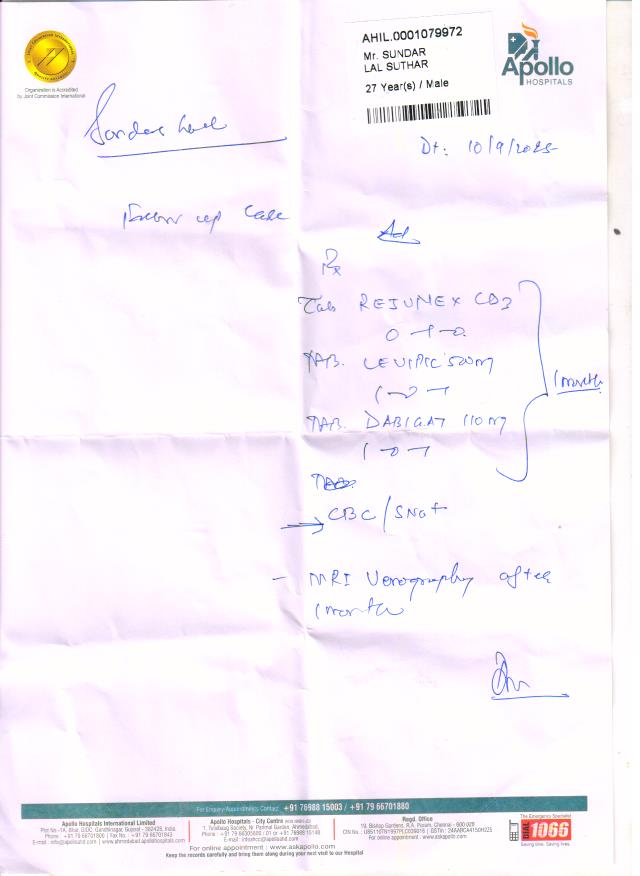 AHIL.0001079972
Mr. SUNDAR
LAL SUTHAR
27 Year(s) / Male
Apollo
HOSPITALS
Organization is Accredited
by Joint Commission International
Dt: 10/9/2025
Follow up case
Ad.
Rx
Tab REJUNEX CD3
0-1-0
TAB. LEVIPIL 500mg
1-0-1
TAB. DABIGAT 110mg
1-0-1
1 month
CBC / SNa+
- MRI Venography after
1 month
For Enquiry/Appointments Contact: +91 76988 15003 / +91 79 66701880
Apollo Hospitals International Limited
Plot No-1A, Bhat, GIDC Gandhinagar, Gujarat - 382428, India.
Phone : +91 79 66701800 | Fax No. : +91 79 66701843
Apollo Hospitals - City Centre
1, Tulsibaug Society, Nr. Parimal Garden, Ahmedabad.
Regd. Office
19, Bishop Gardens, R.A. Puram, Chennai - 600 028
For online appointment : www.askapollo.com
For online appointment : www.askapollo.com
Keep the records carefully and bring them along during your next visit to our Hospital
The Emergency Specialist
DIAL 1066
Saving time. Saving lives.